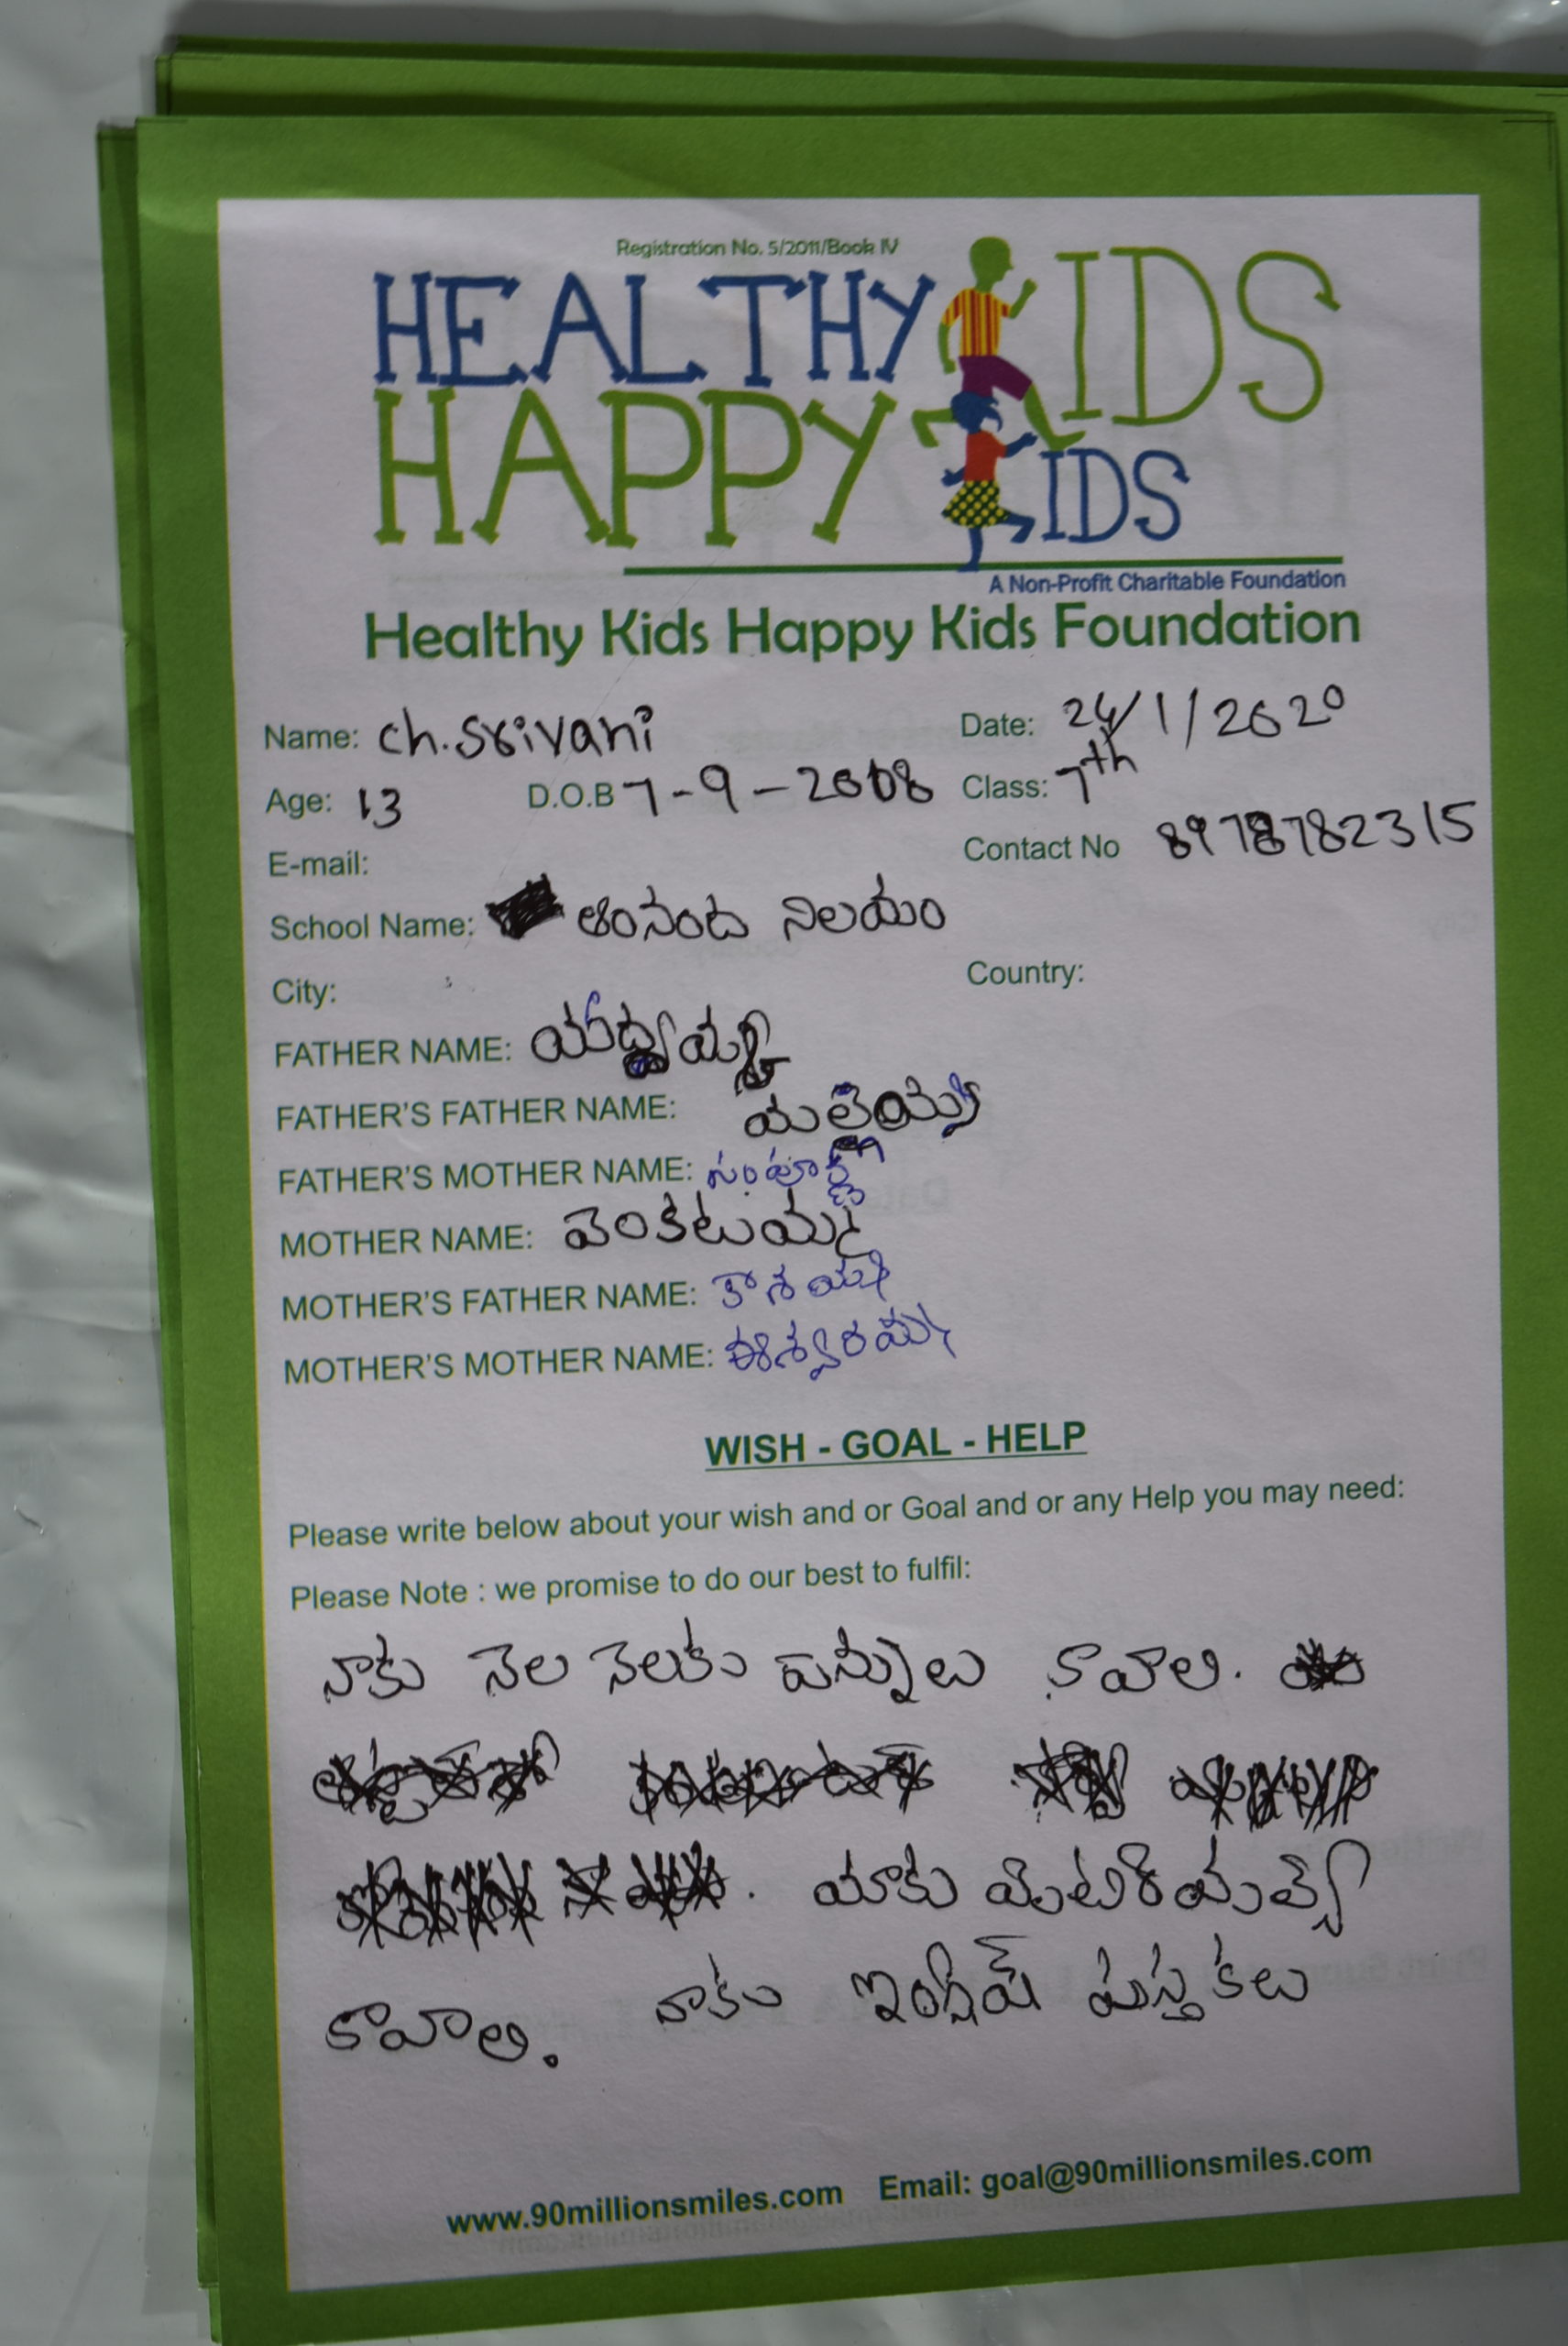 Registration No. 5/2011/Book IV
HEALTHY KIDS
HAPPY KIDS
A Non-Profit Charitable Foundation
Healthy Kids Happy Kids Foundation
Name: Ch. Srivani Date: 24/1/2020
Age: 13 D.O.B 7-9-2008 Class: 7th
E-mail: Contact No 8978782315
School Name: ఆంనంద నిలయం
City: Country:
FATHER NAME:
FATHER'S FATHER NAME: మల్లయ్య
FATHER'S MOTHER NAME: సంపూర్ణ
MOTHER NAME: వెంకటమ్మ
MOTHER'S FATHER NAME: కాశయ్య
MOTHER'S MOTHER NAME: ఈశ్వరమ్మ
WISH - GOAL - HELP
Please write below about your wish and or Goal and or any Help you may need:
Please Note : we promise to do our best to fulfil:
నాకు నెల నెలకు పన్నులు కావాలి.
మాకు మెటిరియల్స్
కావాలి. నాకు ఇంగ్లిష్ పుస్తకలు
www.90millionsmiles.com Email: goal@90millionsmiles.com